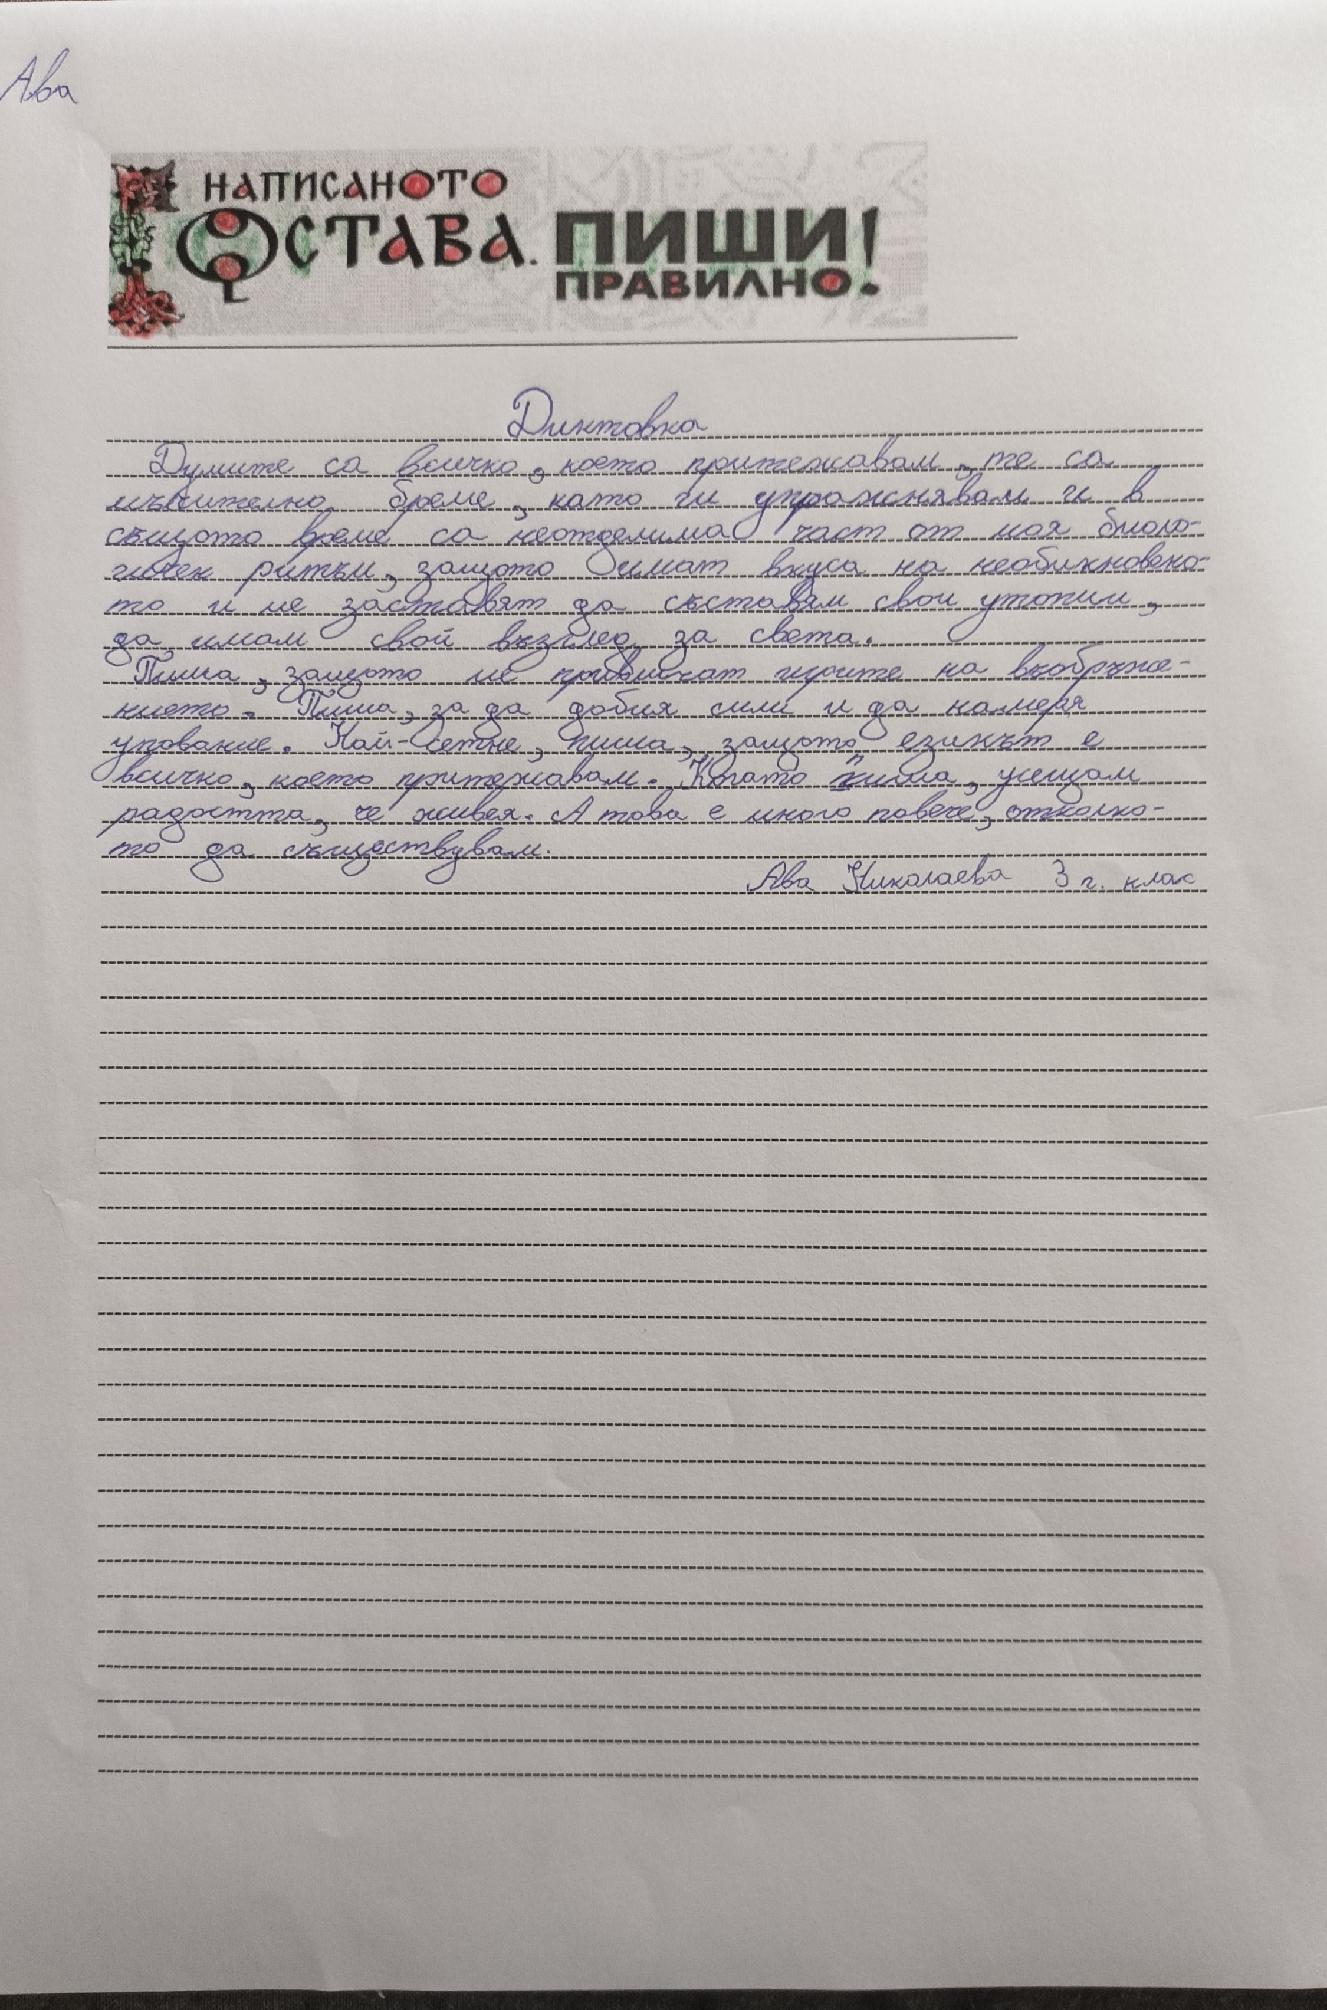 Ава
НАПИСАНОТО
ОСТАВА. ПИШИ
ПРАВИЛНО!
Диктовка
Думите са всичко, което притежавам, те са
мъчително бреме, като ги упражнявам и в
същото време са неотделима част от моя биоло-
гичен ритъм, защото имат вкуса на необикновено-
то и ме заставят да съставям свои утопии,
да имам свой възглед за света.
Пиша, защото ме привличат игрите на въобръже-
нието. Пиша, за да добия сили и да намеря
упование. Най-сетне, пиша, защото езикът е
всичко, което притежавам. Когато пиша, усещам
радостта, че живея. А това е много повече, отколко-
то да съществувам.
Ава Николаева 3 г. клас